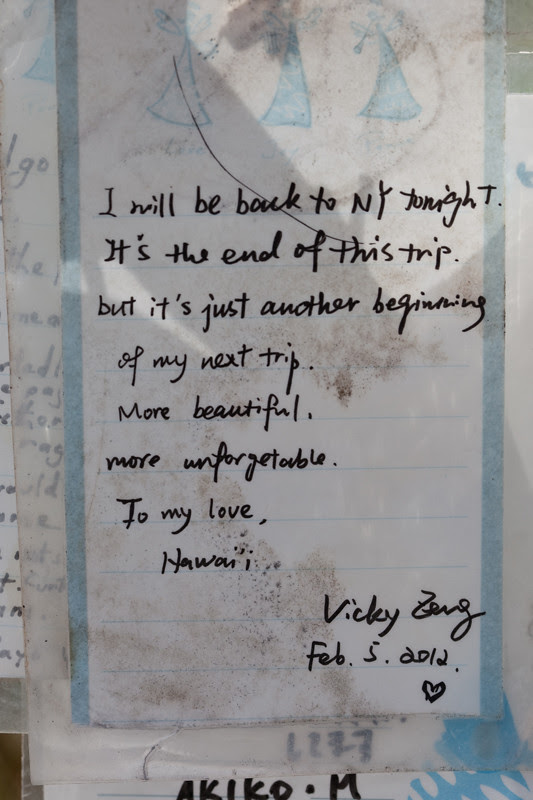 I will be back to NY tonight.
It's the end of this trip.
but it's just another beginning
of my next trip.
More beautiful.
more unforgetable.
To my love,
Hawai'i
Vicky Zeng
Feb. 5. 2012.
AKIKO · M